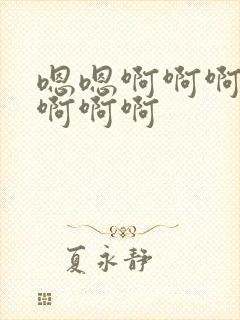 嗯嗯啊啊啊
啊啊啊
夏永静